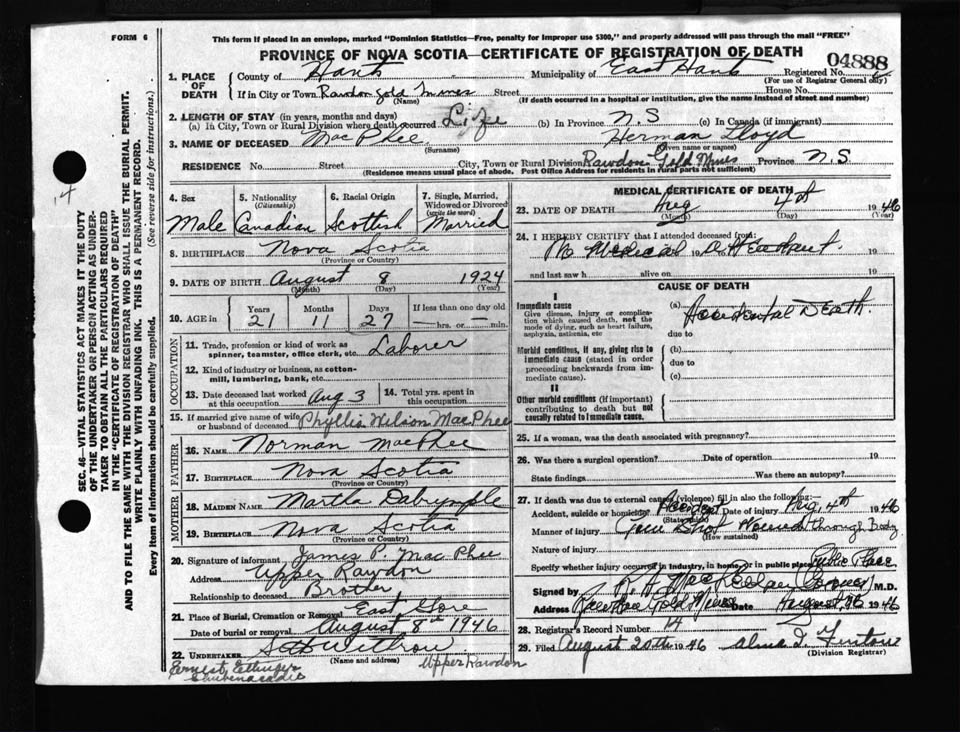 FORM 6
This form if placed in an envelope, marked "Dominion Statistics—Free, penalty for improper use $300," and properly addressed will pass through the mail "FREE"
PROVINCE OF NOVA SCOTIA—CERTIFICATE OF REGISTRATION OF DEATH
04888
1. PLACE OF DEATH { County of Hants Municipality of East Hants Registered No.
(For use of Registrar General only)
If in City or Town Rawdon Gold Mines Street House No.
(Name) (If death occurred in a hospital or institution, give the name instead of street and number)
2. LENGTH OF STAY (in years, months and days)
(a) In City, Town or Rural Division where death occurred Life (b) In Province N.S (c) In Canada (if immigrant)
3. NAME OF DECEASED MacPhee Herman Lloyd
(Surname) (Given name or names)
RESIDENCE No. Street City, Town or Rural Division Rawdon Gold Mines Province N.S.
(Residence means usual place of abode. Post Office Address for residents in rural parts not sufficient)
4. Sex Male
5. Nationality (Citizenship) Canadian
6. Racial Origin Scottish
7. Single, Married, Widowed or Divorced (write the word) Married
8. BIRTHPLACE Nova Scotia
(Province or Country)
9. DATE OF BIRTH August 8 1924
(Month) (Day) (Year)
10. AGE in { Years 21 Months 11 Days 27 If less than one day old hrs. or min.
OCCUPATION
11. Trade, profession or kind of work as spinner, teamster, office clerk, etc. Laborer
12. Kind of industry or business, as cotton-mill, lumbering, bank, etc.
13. Date deceased last worked at this occupation Aug 3
14. Total yrs. spent in this occupation
15. If married give name of wife or husband of deceased Phyllis Wilson MacPhee
FATHER
16. NAME Norman MacPhee
17. BIRTHPLACE Nova Scotia
(Province or Country)
MOTHER
18. MAIDEN NAME Martha Dalrymple
19. BIRTHPLACE Nova Scotia
(Province or Country)
20. Signature of informant James P. MacPhee
Address Upper Rawdon
Relationship to deceased Brother
21. Place of Burial, Cremation or Removal East Gore
Date of burial or removal August 8th 1946
22. UNDERTAKER Withrow Upper Rawdon
(Name and address)
Ernest Ettinger
Shubenacadie
MEDICAL CERTIFICATE OF DEATH
23. DATE OF DEATH Aug 4th 1946
(Month) (Day) (Year)
24. I HEREBY CERTIFY that I attended deceased from:
No Medical 19 to 19
and last saw h alive on 19
CAUSE OF DEATH
I
Immediate cause
Give disease, injury or complication which caused death, not the mode of dying, such as heart failure, asphyxia, asthenia, etc
(a) Accidental Death.
due to
Morbid conditions, if any, giving rise to immediate cause (stated in order proceeding backwards from immediate cause).
(b)
due to
(c)
II
Other morbid conditions (if important) contributing to death but not causally related to immediate cause.
25. If a woman, was the death associated with pregnancy?
26. Was there a surgical operation? Date of operation 19
State findings Was there an autopsy?
27. If death was due to external causes (violence) fill in also the following:
Accident, suicide or homicide? Accident Date of injury Aug, 4th 1946
(State which)
Manner of injury Gun Shot Wound through Body
(How sustained)
Nature of injury
Specify whether injury occurred in industry, in home, or in public place Public Place
Signed by R. A. MacLellan (Coroner) M.D.
Address Rawdon Gold Mines Date August 1946
28. Registrar's Record Number 14
29. Filed August 20th 1946 Alma
(Division Registrar)
SEC. 46—VITAL STATISTICS ACT MAKES IT THE DUTY
OF THE UNDERTAKER OR PERSON ACTING AS UNDER-
TAKER TO OBTAIN ALL THE PARTICULARS REQUIRED
IN THE "CERTIFICATE OF REGISTRATION OF DEATH"
AND TO FILE THE SAME WITH THE DIVISION REGISTRAR WHO SHALL ISSUE THE BURIAL PERMIT.
WRITE PLAINLY WITH UNFADING INK. THIS IS A PERMANENT RECORD.
Every item of information should be carefully supplied. (See reverse side for instructions.)